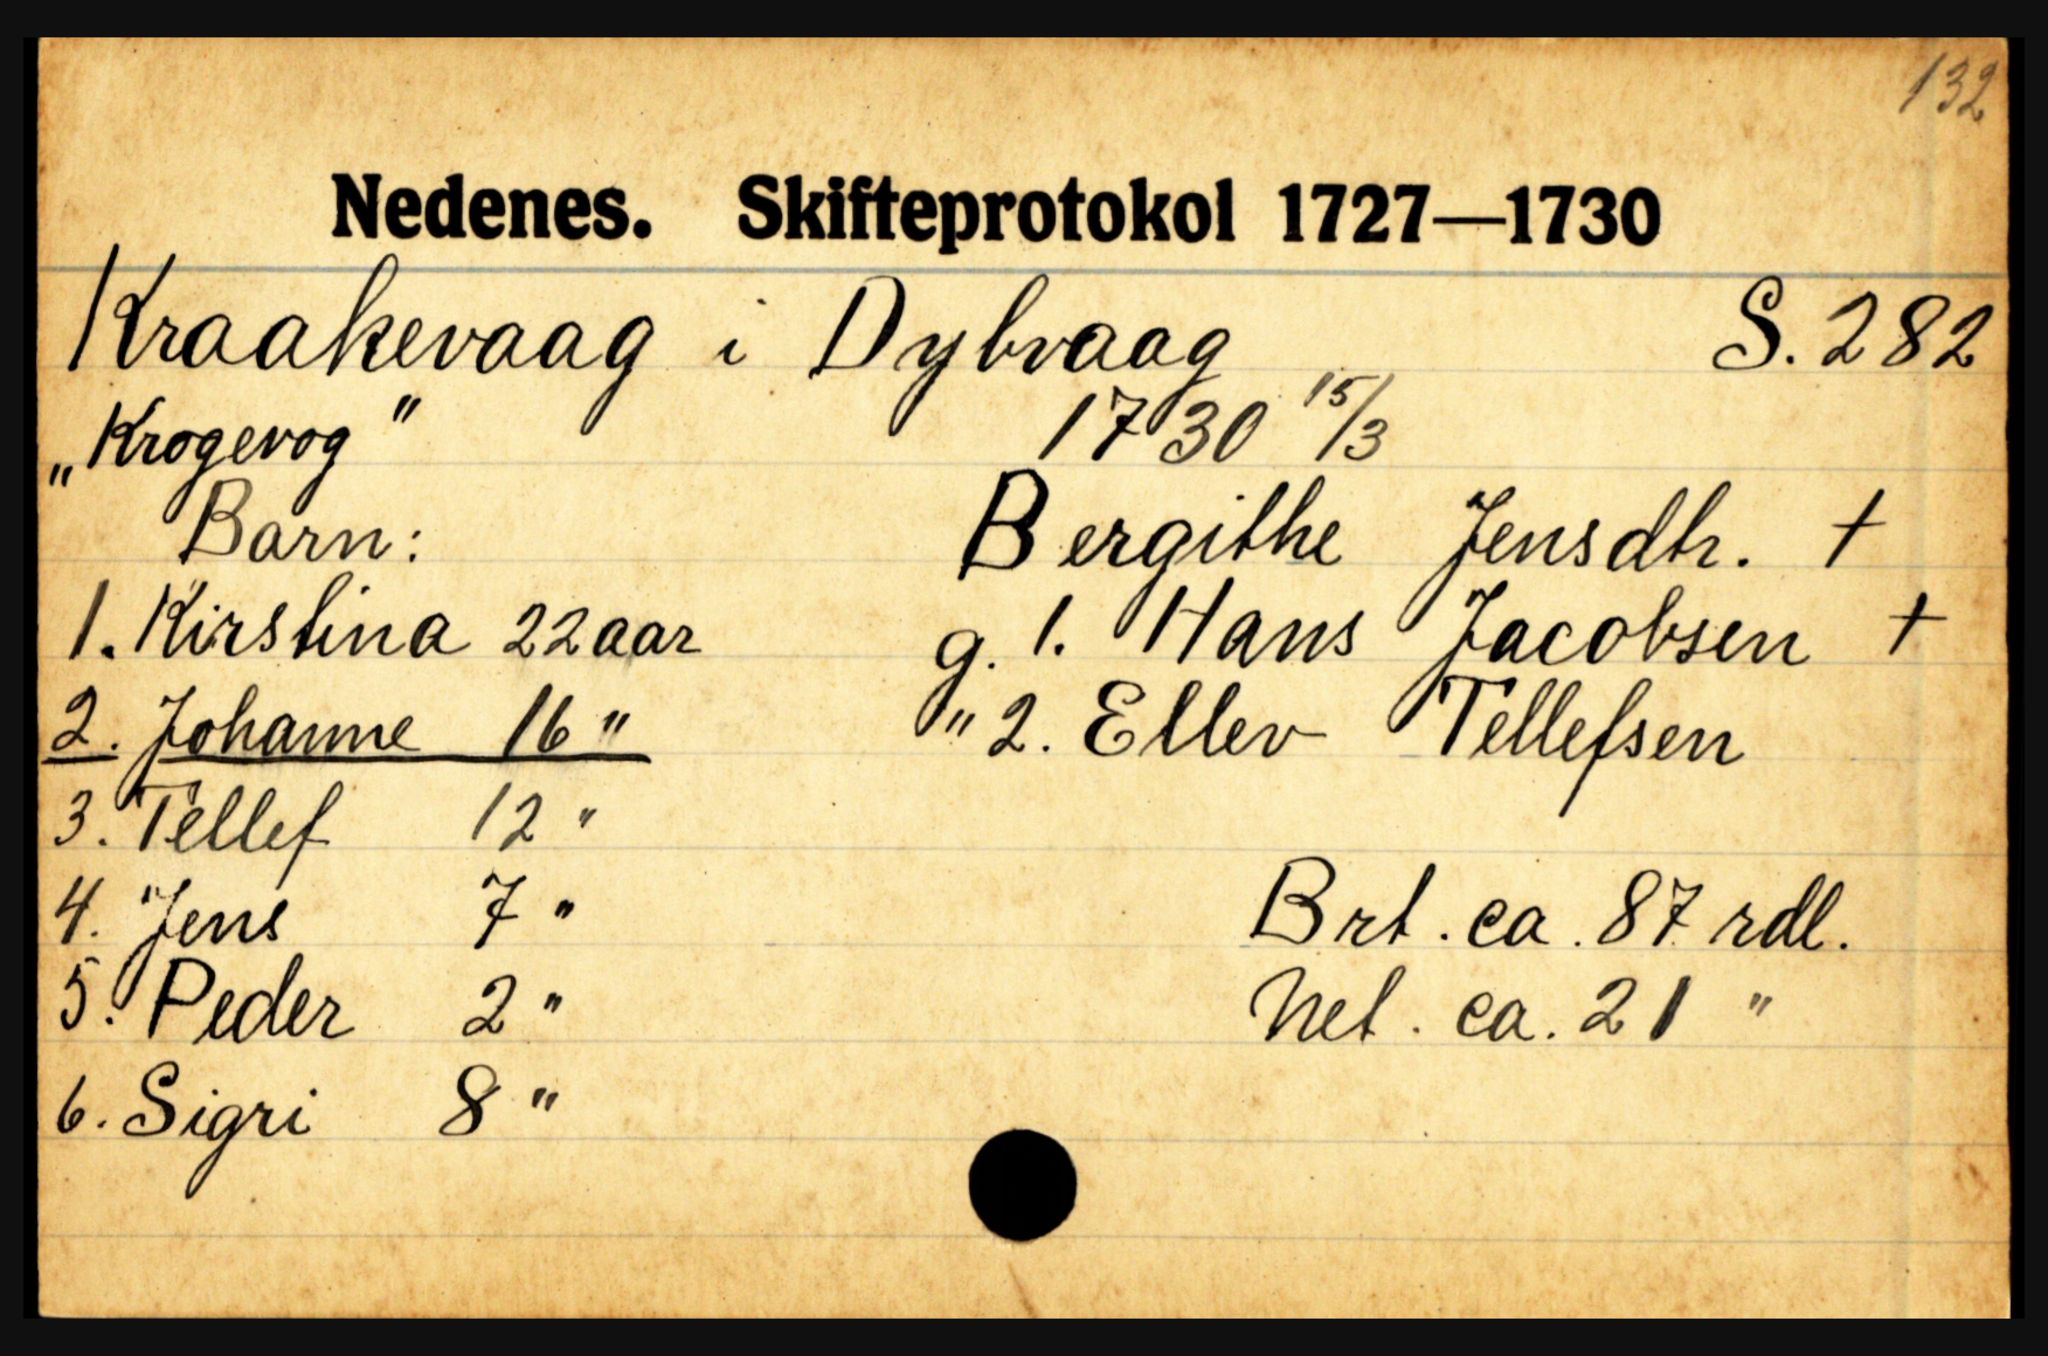 132
Nedenes. Skifteprotokol 1727—1730
Kraakevaag i Dybvaag S. 282
„Krogevog" 1730 15/3
Barn: Bergithe Jensdtr. †
1. Kirstina 22 aar g. 1. Hans Jacobsen †
2. Johanne 16 " " 2. Ellev Tellefsen
3. Tellef 12 "
4. Jens 7 " Brt. ca. 87 rdl.
5. Peder 2 " Net. ca. 21 "
6. Sigri 8 "